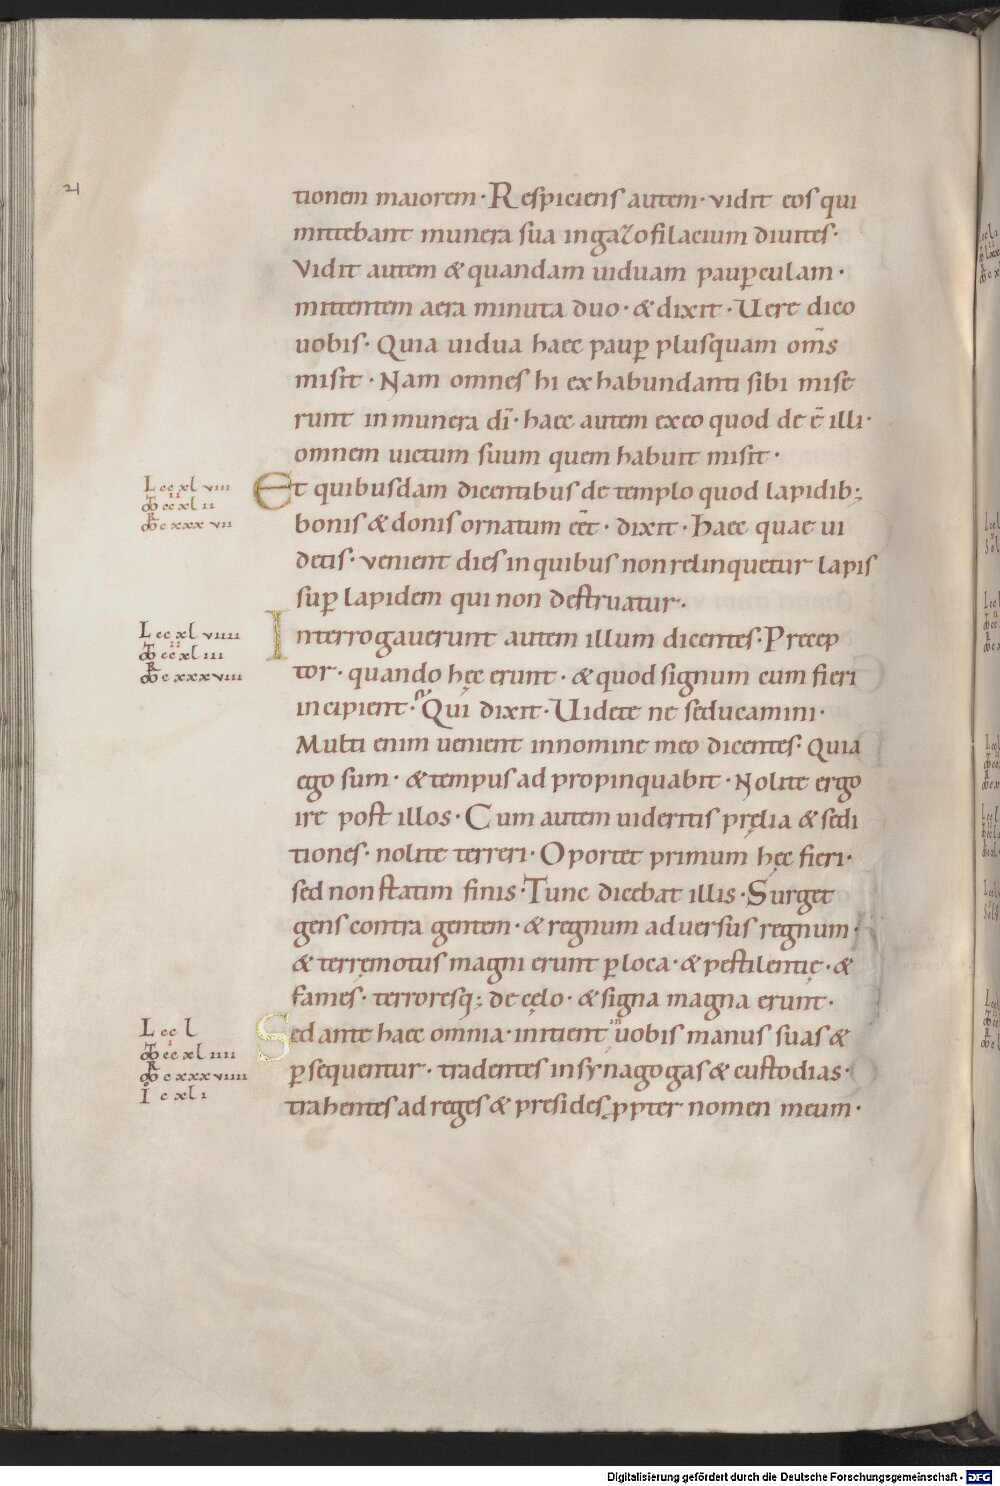 21
tionem maiorem · Respiciens autem · vidit eos qui
mittebant munera sua in gazofilacium divites ·
Vidit autem & quandam viduam paup̄culam ·
mittentem aera minuta duo · & dixit · Uere dico
uobis · Quia uidua haec paup̄ plusquam om̄s
misit · Nam omnes hi ex habundanti sibi mise
runt in munera dī · haec autem ex eo quod de ē illi ·
omnem uictum suum quem habuit misit ·
L cc xl viii
M cc xl ii
R c xxx vii
Et quibusdam dicentibus de templo quod lapidib;
bonis & donis ornatum eēt · dixit · Haec quae ui
detis · venient dies in quibus non relinquetur lapis
sup̄ lapidem qui non destruatur ·
L cc xl viiii
M cc xl iii
R c xxx viii
Interrogaverunt autem illum dicentes · Precep
tor · quando hęc erunt · & quod signum cum fieri
incipient · Qui dixit · Uidete ne seducamini ·
Multi enim uenient in nomine meo dicentes · Quia
ego sum · & tempus ad propinquabit · Nolite ergo
ire post illos · Cum autem videritis pręlia & sedi
tiones · nolite terreri · Oportet primum hęc fieri ·
sed non statim finis · Tunc dicebat illis · Surget
gens contra gentem · & regnum adversus regnum ·
& terręmotus magni erunt p̄ loca · & pestilentię · &
fames · terroresq; de cęlo · & signa magna erunt ·
L cc l
M cc xl iiii
R c xxx viiii
I c xl i
Sed ante haec omnia · initient in uobis manus suas &
p̄sequentur · tradentes in synagogas & custodias ·
trahentes ad reges & presides p̄pter nomen meum ·
Digitalisierung gefördert durch die Deutsche Forschungsgemeinschaft - DFG